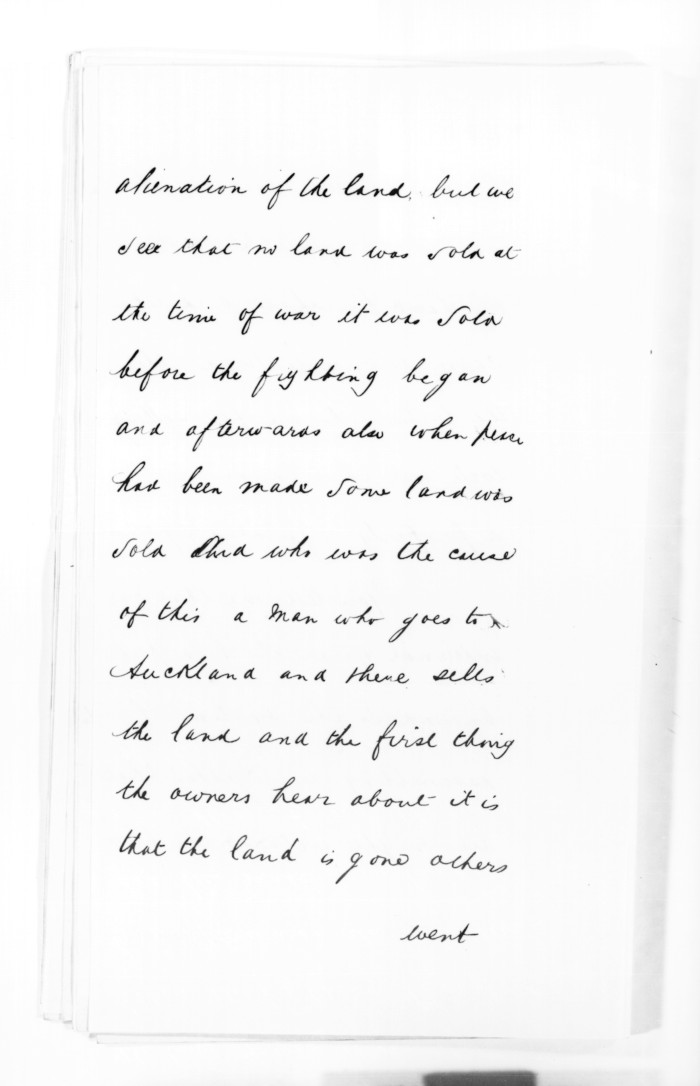 alienation of the land, but we
see that no land was sold at
the time of war it was sold
before the fighting began
and afterwards also when peace
had been made some land was
sold And who was the cause
of this a man who goes to
Auckland and there sells
the land and the first thing
the owners hear about it is
that the land is gone others
went